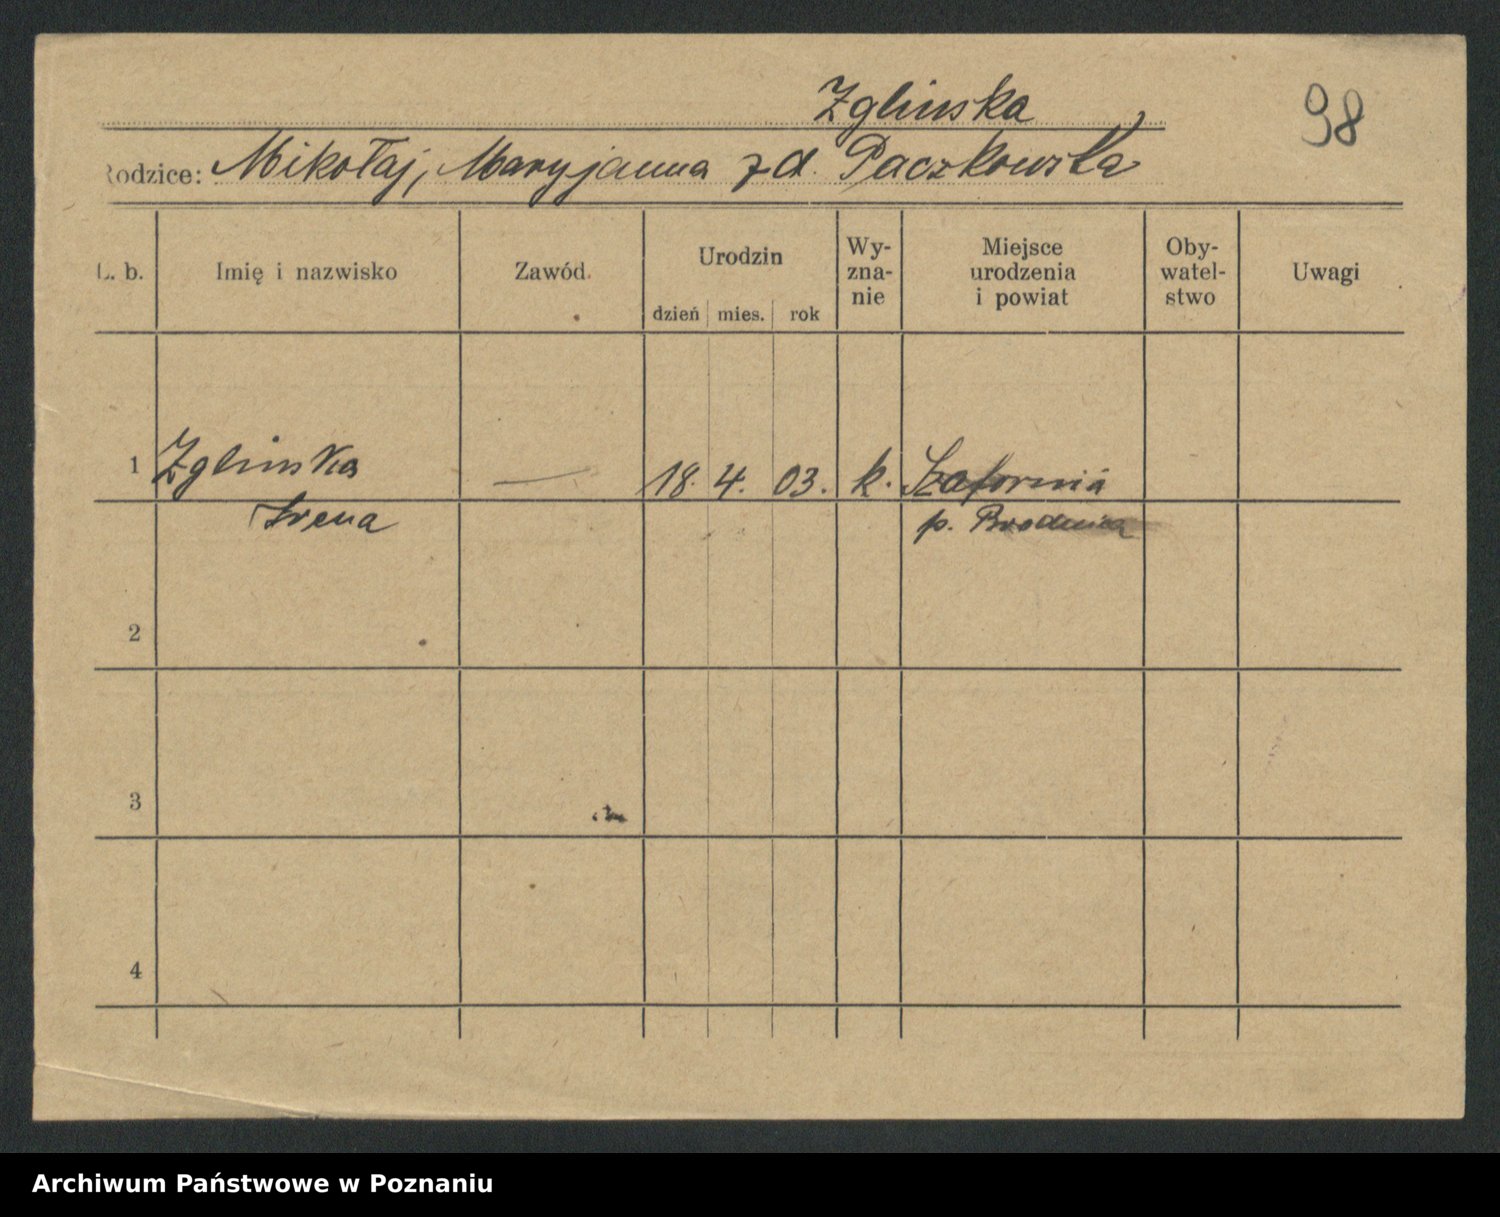 Zglinska
98
Rodzice: Mikołaj, Maryjanna z d. Paczkowska
L. b. Imię i nazwisko Zawód Urodzin dzień mies. rok Wyznanie Miejsce urodzenia i powiat Obywatelstwo Uwagi
1 Zglinska — 18. 4. 03. k. Szafarnia
Irena p. Brodnica
2
3
4
Archiwum Państwowe w Poznaniu